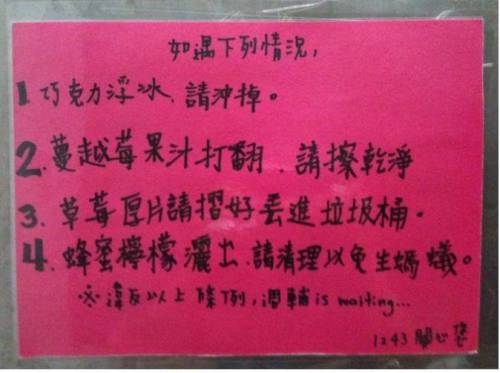 如遇下列情況，
1 巧克力浮冰、請沖掉。
2. 蔓越莓果汁打翻、請擦乾淨
3. 草莓厚片請摺好丟進垃圾桶。
4. 蜂蜜檸檬灑出、請清理以免生螞蟻。
※違反以上條例，週輔 is waiting...
1243 關心您